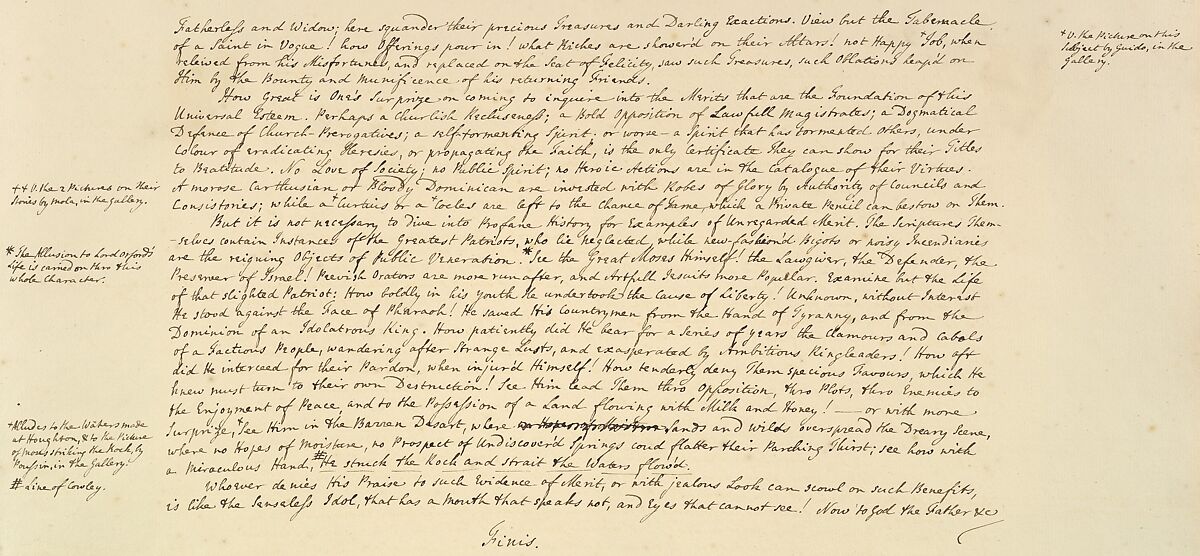 Fatherless and Widow; here squander their precious Treasures and Darling Exactions. View but the Tabernacle
of a Saint in Vogue! how Offerings pour in! what Riches are shower'd on their Altars! not Happy † Job, when
releived from his Misfortunes, and replaced on the Seat of Felicity, saw such Treasures, such Oblations heap'd on
Him by the Bounty and Munificence of his returning Friends.
† V. the Picture on this
Subject by Guido, in the
Gallery.
How Great is One's Surprize on coming to inquire into the Merits that are the Foundation of this
Universal Esteem. Perhaps a Churlish Recluseness; a Bold Opposition of Lawfull Magistrates; a Dogmatical
Defiance of Church-Prerogatives; a self-tormenting Spirit; or worse — a Spirit that has tormented others, under
Colour of eradicating Heresies, or propagating the Faith, is the only Certificate They can show for their Titles
to Beatitude. No Love of Society; no Public Spirit; no Heroic Actions are in the Catalogue of their Virtues.
A morose Carthusian, or Bloody Dominican are invested with Robes of Glory by Authority of Councils and
Consistories; while a † Curtius or a † Cocles are left to the Chance of Fame, which a Private Pencil can bestow on Them.
†† V. the 2 Pictures on their
Stories by Mola, in the Gallery.
But it is not necessary to Dive into Profane History for Examples of Unregarded Merit. The Scriptures Them-
-selves contain Instances of the Greatest Patriots, who lie neglected, while new-fashion'd Bigots or noisy Incendiaries
are the reigning Objects of Public Veneration. * See the Great Moses Himself! the Lawgiver, the Defender, the
Preserver of Israel! Peevish Orators are more run after, and Artfull Jesuits more Popular. Examine but the Life
of that slighted Patriot: How boldly in his youth He undertook the Cause of Liberty! Unknown, without Interest
He stood against the Face of Pharaoh! He saved His Countrymen from the Hand of Tyranny, and from the
Dominion of an Idolatrous King. How patiently did He bear for a Series of years the Clamours and Cabals
of a Factious People, wandering after Strange Lusts, and exasperated by Ambitious Ringleaders! How oft
did He interceed for their Pardon, when injur'd Himself! How tenderly deny Them Specious Favours, which He
knew must turn to their own Destruction! See Him lead Them thro Opposition, thro Plots, thro Enemies to
the Enjoyment of Peace, and to the Possession of a Land flowing with Milk and Honey! — or with more
Surprize, † See Him in the Barren Desart, where Sands and Wilds overspread the Dreary Scene,
where no Hopes of Moisture, no Prospect of Undiscover'd Springs coud flatter their Parching Thirst; see how with
a Miraculous Hand, # He struck the Rock and strait the Waters flow'd.
* The Allusion to Lord Orford's
Life is carried on thro this
whole Character.
† Alludes to the Waters made
at Houghton, & to the Picture
of Moses striking the Rock, by
Poussin, in the Gallery.
# a Line of Cowley.
Whoever denies His Praise to such Evidence of Merit, or with jealous Look can scowl on such Benefits,
is like the senseless Idol, that has a Mouth that speaks not, and Eyes that cannot see! Now to God the Father &c
Finis.